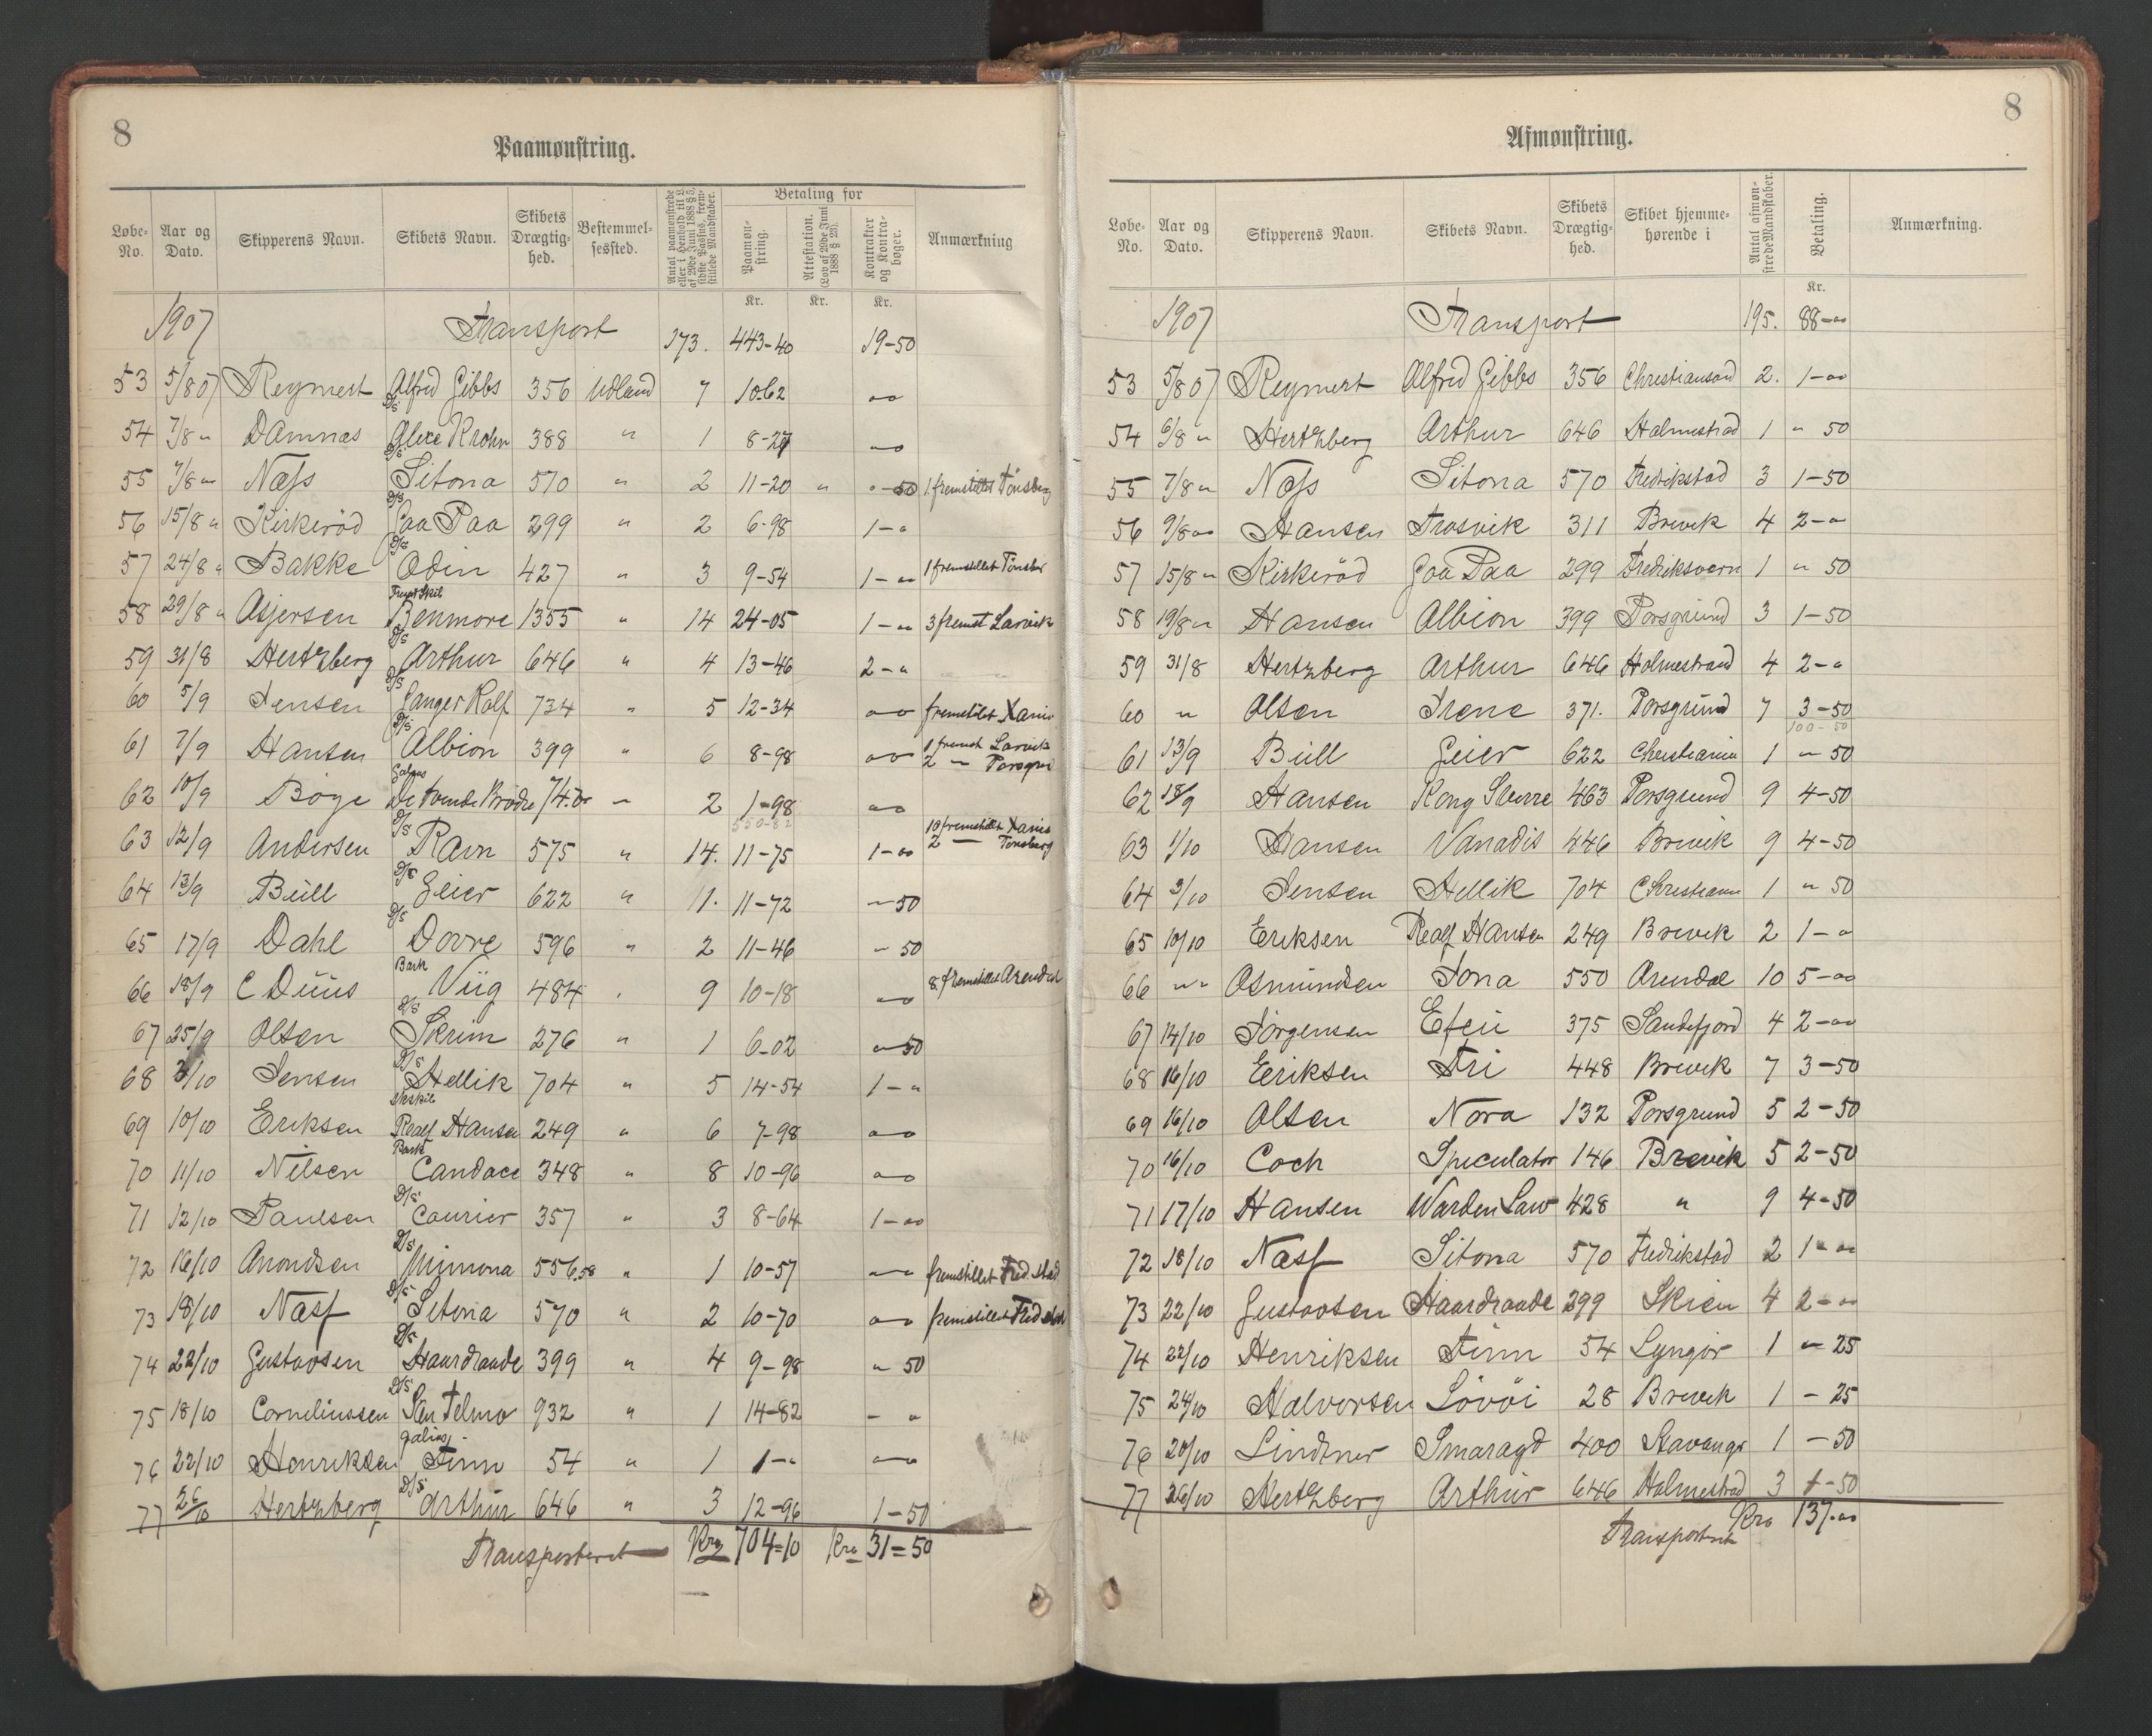 8
Paamønstring.
Løbe-No. | Aar og Dato. | Skipperens Navn. | Skibets Navn. | Skibets Drægtighed. | Bestemmelsessted. | Antal paamønstrede eller i Henhold til L. af 29de Juni 1888 § 5, sidste Passus, fremstillede Mandskaber. | Betaling for | Paamønstring. | Attestation. (Lov af 29de Juni 1888 § 20). | Kontrakter og Kontrabøger. | Anmærkning
Kr. | Kr. | Kr.
1907 | Transport | 173. | 443-40 | 19-50
53 | 5/8 07 | Reymert | Alfred Gibbs | 356 | Udland | 7 | 10-62 | "-"
54 | 7/8 " | Damnas | D/S Alexe Krohn | 388 | " | 1 | 8-27 | "-"
55 | 7/8 " | Næss | D/S Sitona | 570 | " | 2 | 11-20 | " | "-50 | 1 fremstillet Tönsberg
56 | 15/8 " | Kirkeröd | D/S Gaa Paa | 299 | " | 2 | 6-98 | 1-"
57 | 24/8 " | Bakke | D/S Odin | 427 | " | 3 | 9-54 | 1-" | 1 fremstillet Tönsber
58 | 29/8 " | Asjersen | Benmore | 1355 | " | 14 | 24-05 | 1-" | 3 fremst Larvik
59 | 31/8 | Hertzberg | D/S Arthur | 646 | " | 4 | 13-46 | 2-"
60 | 5/9 | Jensen | D/S Ganger Rolf | 734 | " | 5 | 12-34 | "-" | fremstilet Xania
61 | 7/9 | Hansen | D/S Albion | 399 | " | 6 | 8-98 | "-" | 1 fremst Larvik
2 — Porsgru
62 | 10/9 | Böye | De tvende Brödre | 74. | " | 2 | 1-98 | "-"
550-82
63 | 12/9 | Andersen | D/S Ravn | 575 | " | 14. | 11-75 | 1-" | 10 fremstillet Xania
2 — Tönsberg
64 | 13/9 | Büll | D/S Geier | 622 | " | 11. | 11-72 | "-50
65 | 17/9 | Dahl | D/S Dovre | 596 | " | 2 | 11-46 | "-50
66 | 18/9 | C Duus | Bark Viig | 484 | " | 9 | 10-18 | "-" | 8 fremstillet Arendal
67 | 25/9 | Olsen | D/S Skrim | 276 | " | 1 | 6-02 | "-50
68 | 3/10 | Jensen | D/S Hellik | 704 | " | 5 | 14-54 | 1-"
69 | 10/10 | Eriksen | Realf Hansen | 249 | " | 6 | 7-98 | "-"
70 | 11/10 | Nilsen | Bark Candace | 348 | " | 8 | 10-96 | "-"
71 | 12/10 | Paulsen | D/S Courier | 357 | " | 3 | 8-64 | 1-"
72 | 16/10 | Anondsen | D/S Mimona | 556,58 | " | 1 | 10-57 | "-" | fremstillet Fred.stad
73 | 18/10 | Næss | D/S Sitona | 570 | " | 2 | 10-70 | "-" | fremstillet Fred stad
74 | 22/10 | Gustavsen | D/S Haardraade | 399 | " | 4 | 9-98 | " 50
75 | 18/10 | Corneliussen | D/S San Telmo | 932 | " | 1 | 14-82 | - "
76 | 22/10 | Henriksen | galias Finn | 54 | " | 1 | 1-" | "-"
77 | 26/10 | Hertzberg | D/S Arthur | 646 | " | 3 | 12-96 | 1-50
Transporteret | Kr. 704=10 | Kr. 31=50
8
Afmønstring.
Løbe-No. | Aar og Dato. | Skipperens Navn. | Skibets Navn. | Skibets Drægtighed. | Skibet hjemmehørende i | Antal afmønstrede Mandskaber. | Betaling. | Anmærkning.
Kr.
1907 | Transport | 195. | 88-"
53 | 5/8 07 | Reymert | Alfred Gibbs | 356 | Christiansand | 2. | 1-"
54 | 6/8 " | Hertzberg | Arthur | 646 | Holmestrad | 1 | " 50
55 | 7/8 " | Næss | Sitona | 570 | Fredrikstad | 3 | 1-50
56 | 9/8 " | Hansen | Trosvik | 311 | Brevik | 4 | 2-"
57 | 15/8 " | Kirkeröd | Gaa Paa | 299 | Fredriksvern | 1 | " 50
58 | 19/8 " | Hansen | Albion | 399 | Porsgrund | 3 | 1-50
59 | 31/8 | Hertzberg | Arthur | 646 | Holmestrand | 4 | 2-"
60 | " | Olsen | Irene | 371. | Porsgrund | 7 | 3-50
100-50
61 | 13/9 | Büll | Geier | 622 | Christiania | 1 | " 50
62 | 18/9 | Hansen | Kong Sverre | 463 | Porsgrund | 9 | 4-50
63 | 1/10 | Hansen | Vanadis | 446 | Brevik | 9 | 4-50
64 | 3/10 | Jensen | Hellik | 704 | Christiania | 1 | " 50
65 | 10/10 | Eriksen | Realf Hansen | 249 | Brevik | 2 | 1-"
66 | " " | Osmundsen | Tona | 550 | Arendal | 10 | 5-"
67 | 14/10 | Jörgensen | Efeu | 375 | Sandefjord | 4 | 2-"
68 | 16/10 | Eriksen | Fri | 448 | Brevik | 7 | 3-50
69 | 16/10 | Olsen | Nora | 132 | Porsgrund | 5 | 2-50
70 | 16/10 | Coch | Speculator | 146 | Brevik | 5 | 2-50
71 | 17/10 | Hansen | Warden Law | 428 | " | 9 | 4-50
72 | 18/10 | Næss | Sitona | 570 | Fredrikstad | 2 | 1-"
73 | 22/10 | Gustavsen | Haardraade | 299 | Skien | 4 | 2-"
74 | 22/10 | Henriksen | Finn | 54 | Lyngör | 1 | "-25
75 | 24/10 | Halvorsen | Lövöi | 28 | Brevik | 1 | -25
76 | 20/10 | Lindtner | Smaragd | 400 | Stavanger | 1 | -50
77 | 26/10 | Hertzberg | Arthur | 646 | Holmestrad | 3 | 1-50
Transporteret | Kr. 137-"